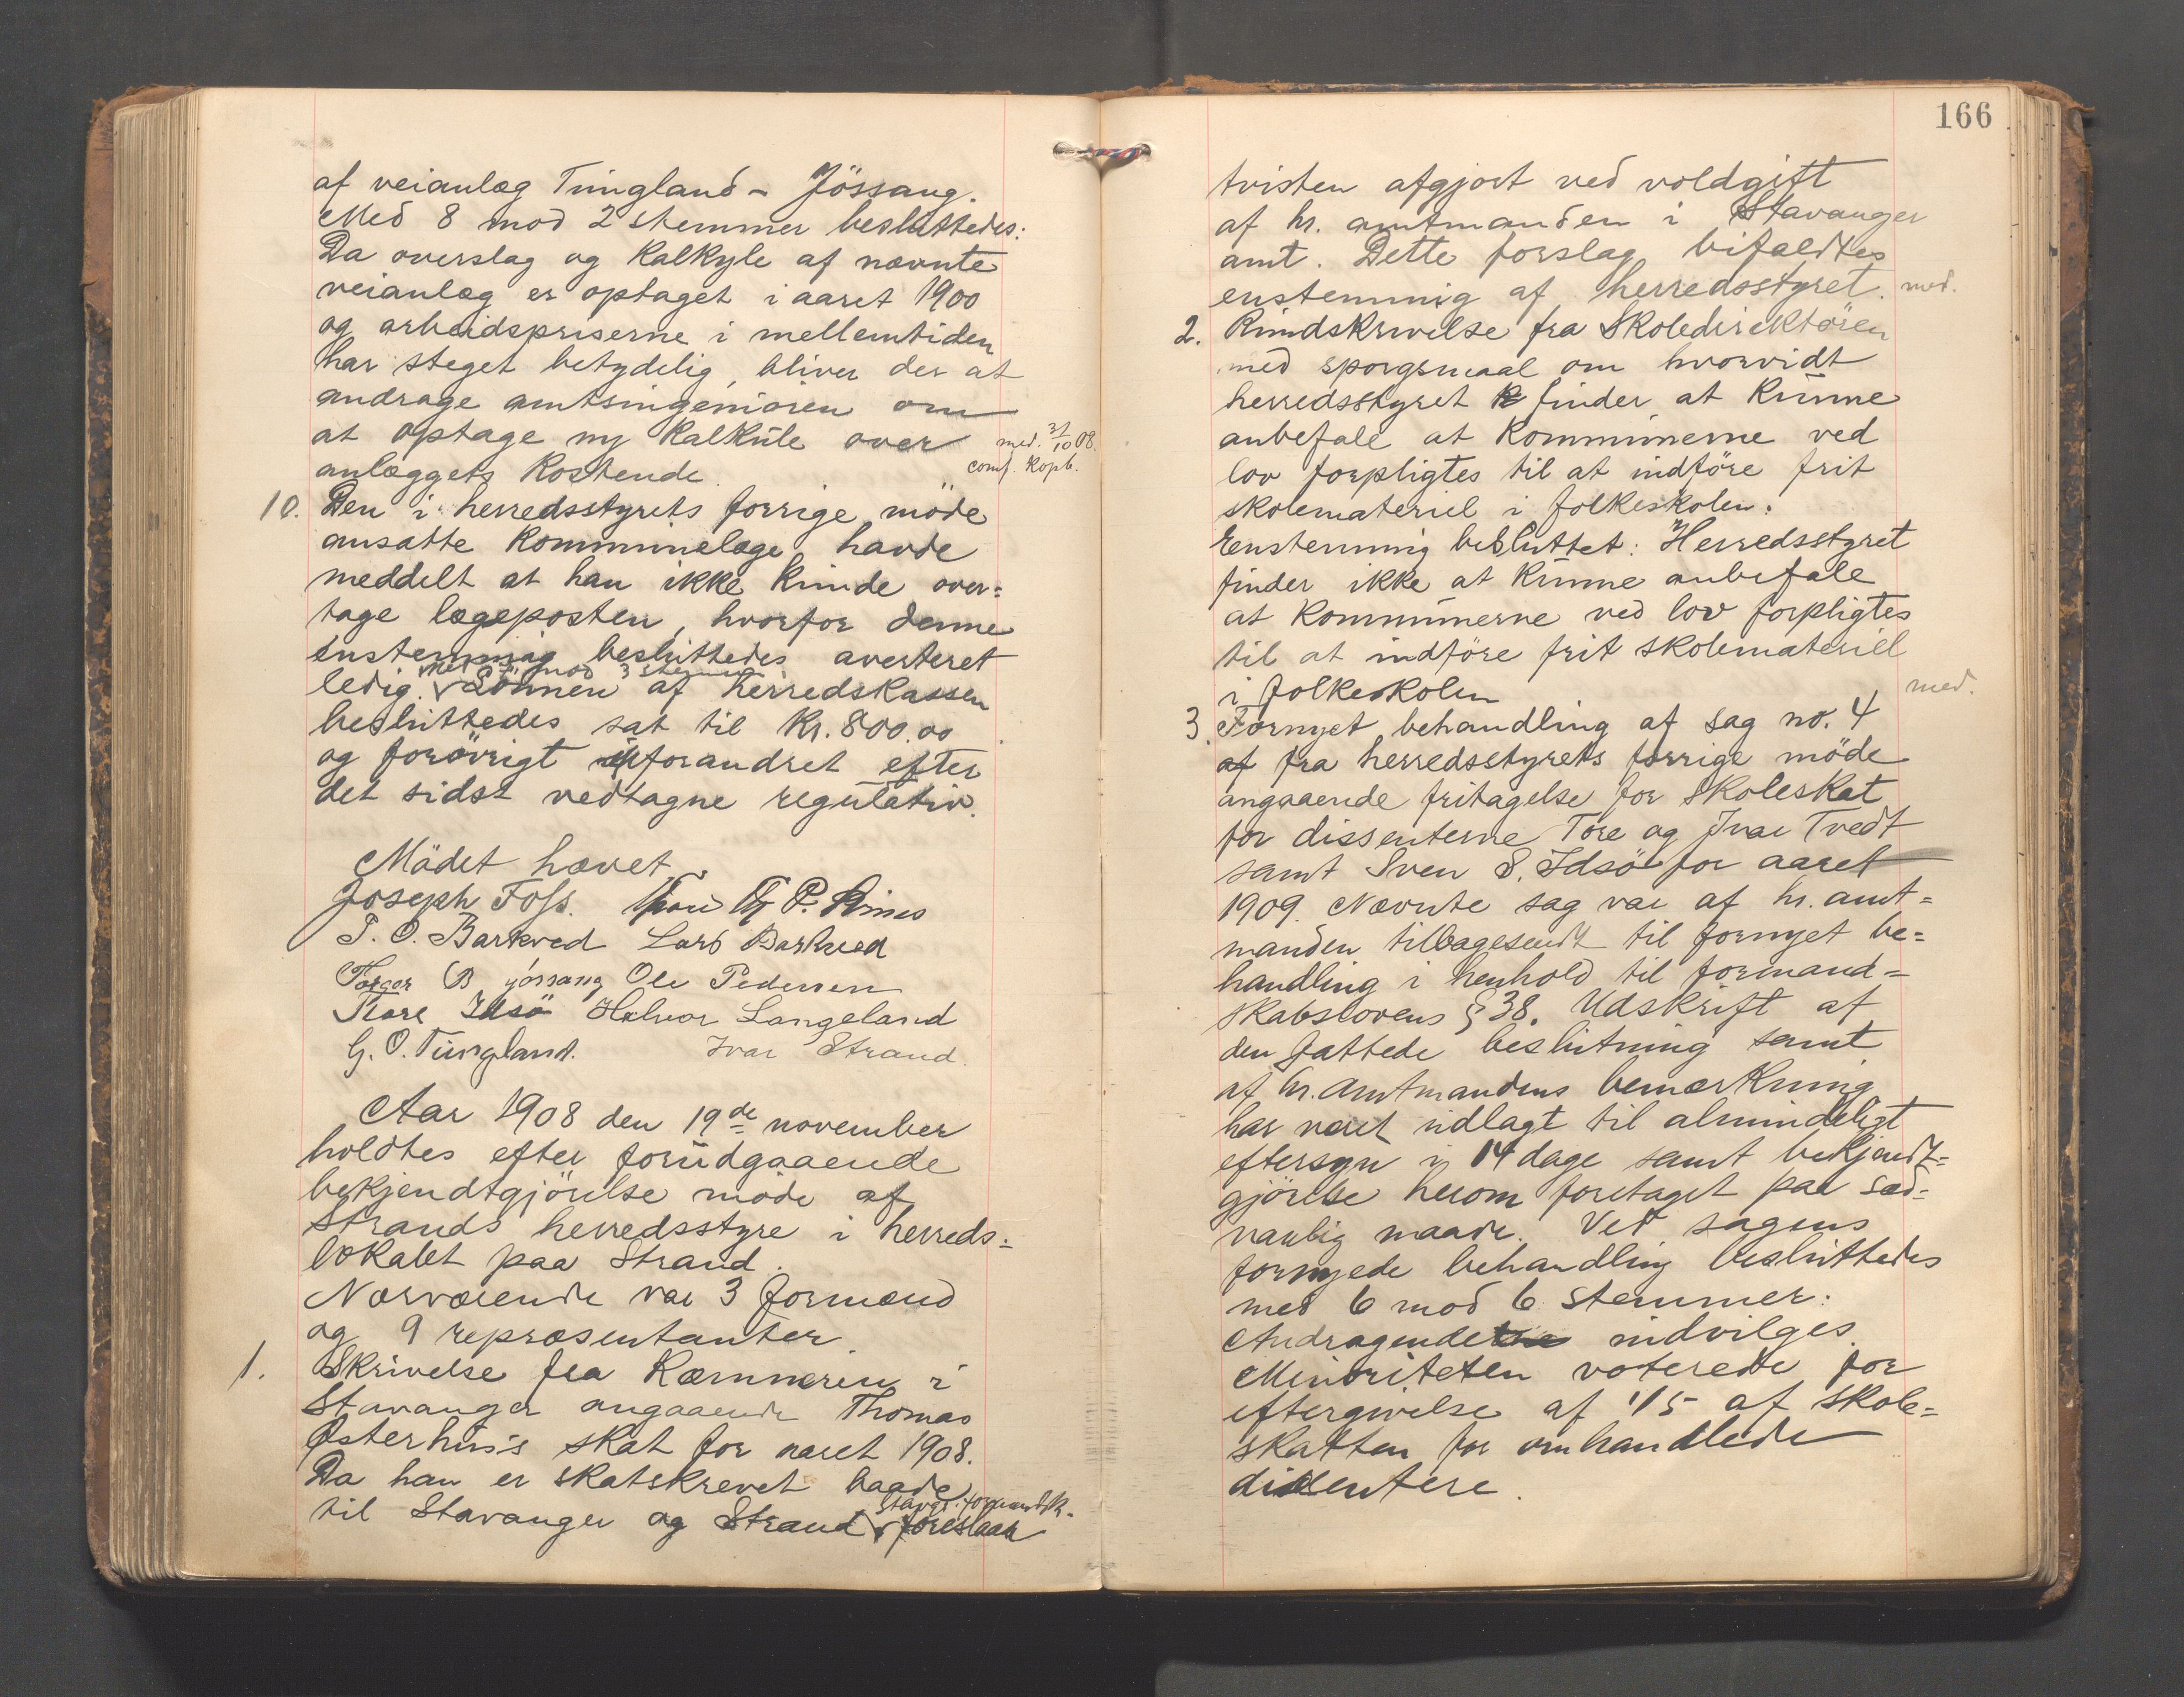 af veianlæg Tungland - Jössang.
Med 8 mod 2 stemmer besluttedes:
Da overslag og kalkyle af nævnte
veianlæg er optaget i aaret 1900
og arbeidspriserne i mellemtiden
har steget betydelig, bliver der at
andrage amtsingeniören om
at optage ny kalkule over
med. 31/10 08.
anlæggets kostende.
conf. kopb.
10. Den i herredsstyrets forrige möde
ansatte kommunelæge havde
meddelt at han ikke kunde over=
tage lægeposten, hvorfor denne
enstemmig besluttedes averteret
mod 3 stemmer
ledig. Lönnen af herredskassen
besluttedes sat til Kr. 800.00
og forövrigt uforandret efter
det sidst vedtagne regulativ.
Mödet hævet.
Joseph Foss. P.
P. O. Barkved Lars Barkved
B Jössang Ole Pedersen
Tore Idsö Halvor Langeland
G. O. Tungland. Ivar Strand.
Aar 1908 den 19de november
holdtes efter forudgaaende
bekjendtgjörelse möde af
Strands herredsstyre i herreds=
lokalet paa Strand.
Nærværende var 3 formænd
og 9 repræsentanter.
1. Skrivelse fra Kæmneren i
Stavanger angaaende Thomas
Østerhus's skat for aaret 1908.
Da han er skatskrevet baade
Stavgr. formandsk.
til Stavanger og Strand foreslaar
166
tvisten afgjort ved voldgift
af hr. amtmanden i Stavanger
amt. Dette forslag bifaldtes
enstemmig af herredsstyret. med.
2. Rundskrivelse fra Skoledirektören
med spørgsmaal om hvorvidt
herredsstyret finder at kunne
anbefale at kommunerne ved
lov forpligtes til at indföre frit
skolemateriel i folkeskolen.
Enstemmig besluttet: Herredsstyret
finder ikke at kunne anbefale
at kommunerne ved lov forpligtes
til at indföre frit skolemateriel
i folkeskolen
med.
3. Fornyet behandling af sag no. 4
af fra herredsstyrets forrige möde
angaaende fritagelse for skoleskat
for dissenterne Tore og Ivar Tvedt
samt Sven S. Idsö for aaret
1909. Nævnte sag var af hr. amt=
manden tilbagesendt til fornyet be=
handling i henhold til formand=
skabslovens § 38. Udskrift af
den fattede beslutning samt
af hr. Amtmandens bemærkning
har været udlagt til almindeligt
eftersyn i 14 dage samt bekjendt=
gjörelse herom foretaget paa sæd=
vanlig maade. Ved sagens
fornyede behandling besluttedes
med 6 mod 6 stemmer:
Andragendet indvilges.
Minoriteten voterede for
eftergivelse af 1/5 af skole=
skatten for omhandlede
disentere.